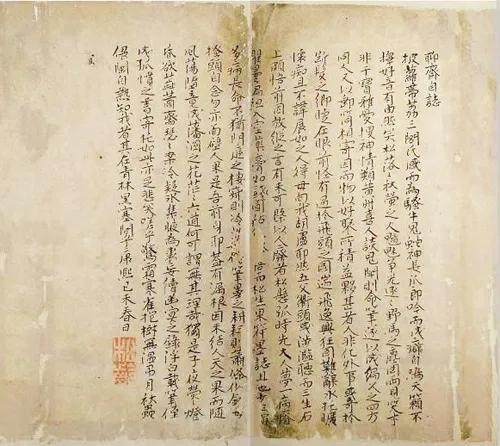 聊齋自誌
披蘿帶荔三閭氏感而為騷牛鬼蛇神長爪郎吟而成癖自鳴天籟不
擇好音有由然矣松落落秋螢之火魑魅爭光逐逐野馬之塵罔兩見笑才
非干寶雅愛搜神情類黃州喜人談鬼聞則命筆遂以成編久之四方
同人又以郵筒相寄因而物以好聚所積益夥甚者人非化外事或奇於
斷髮之鄉睫在眼前怪有過於飛頭之國遄飛逸興狂固難辭永托曠
懷癡且不諱展如之人得毋向我胡盧耶然五父衢頭或涉濫聽而三生石
上頗悟前因放縱之言有未可概以人廢者松懸弧時先大人夢一病瘠
瞿曇偏袒入室藥膏如錢圓粘 寤而松生果符墨誌且也少羸
多病長命不猶門庭之棲寂則冷 筆墨之耕耘則蕭條似缽每
搔頭自念勿亦面壁人果是吾前身耶蓋有漏根因未結人天之果而隨
風蕩墮竟成藩溷之花茫茫六道何可謂無其理哉獨是子夜熒熒燈
昏欲蕊蕭齋瑟瑟案冷疑冰集腋為裘妄續幽冥之錄浮白載筆僅
成孤憤之書寄托如此亦足悲矣嗟乎驚霜寒雀抱樹無溫弔月秋蟲
偎闌自熱知我者其在青林黑塞間乎康熙己未春日